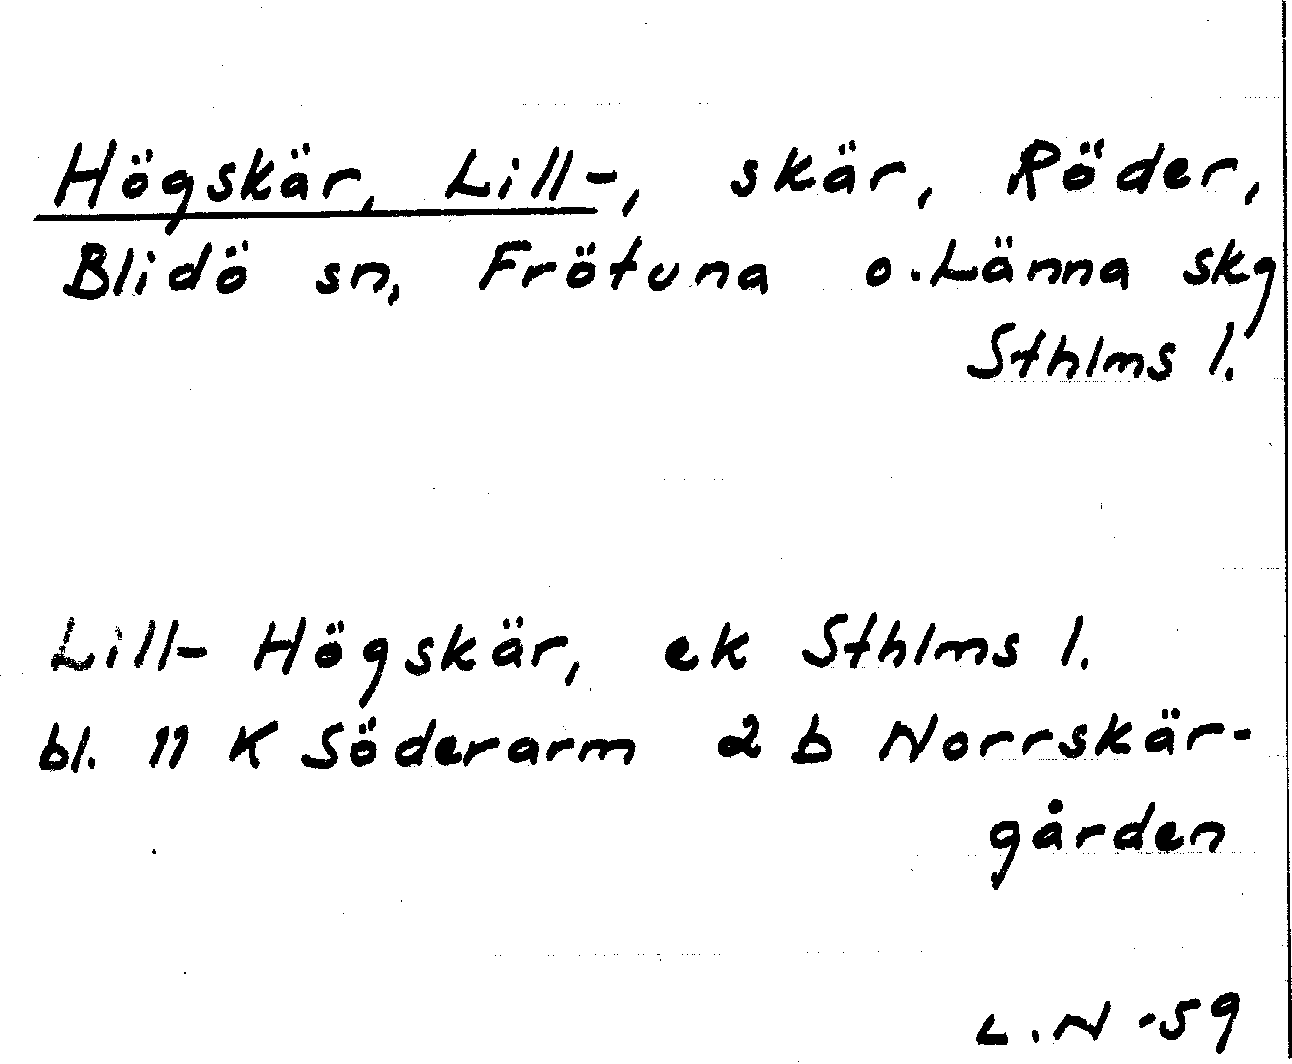 Högskär, Lill-, skär, Röder,
Blidö sn, Frötuna o. Länna skg
Sthlms l.
Lill-Högskär, ek Sthlms l.
bl. 11 K Söderarm 2 b Norrskär-
gården
L.N -59